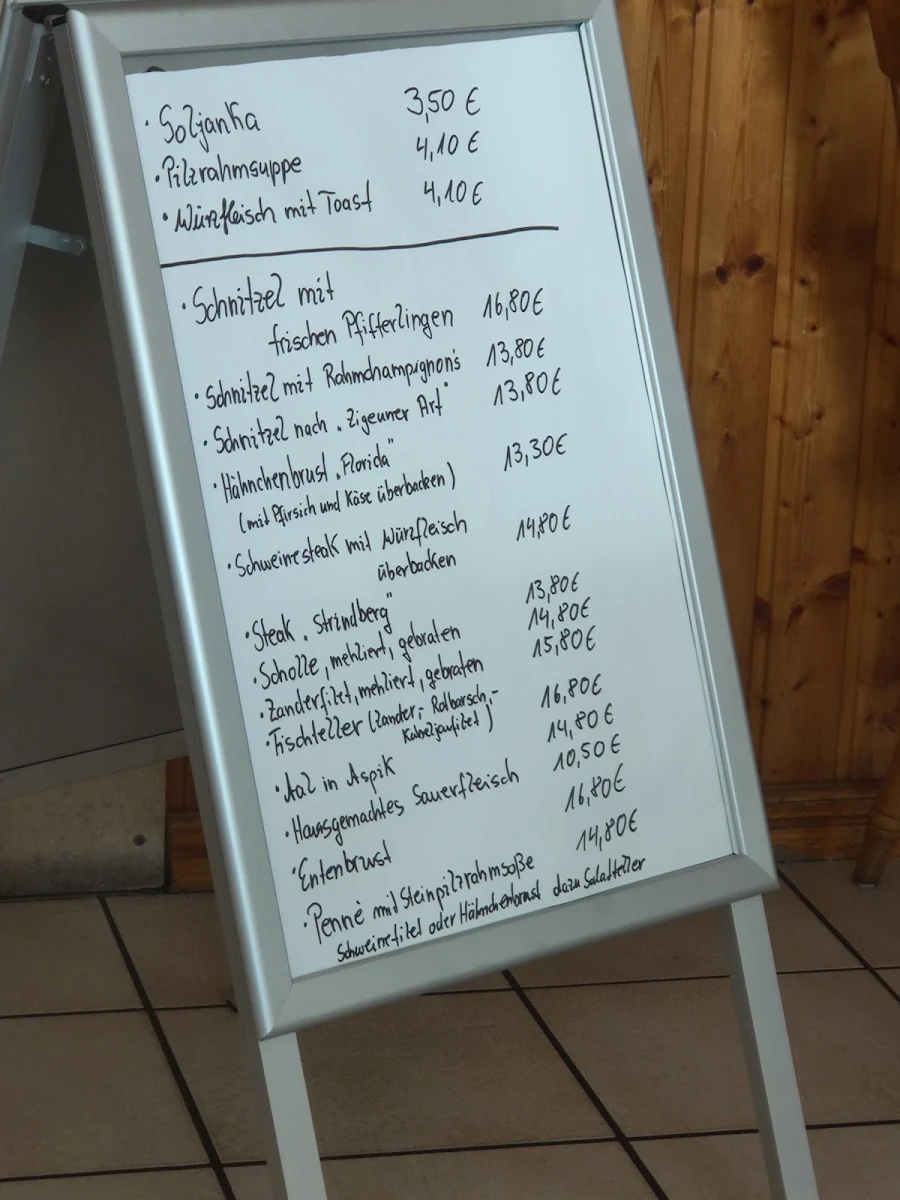 · Soljanka 3,50 €
· Pilzrahmsuppe 4,10 €
· Würzfleisch mit Toast 4,10 €
· Schnitzel mit
frischen Pfifferlingen 16,80 €
· Schnitzel mit Rahmchampignon's 13,80 €
· Schnitzel nach „Zigeuner Art" 13,80 €
· Hähnchenbrust „Florida" 13,30 €
(mit Pfirsich und Käse überbacken)
· Schweinesteak mit Würzfleisch 14,80 €
überbacken
· Steak „Strindberg" 13,80 €
· Scholle, mehliert, gebraten 14,80 €
· Zanderfilet, mehliert, gebraten 15,80 €
· Fischteller (Zander,- Rotbarsch,- 16,80 €
Kabeljaufilet)
· Aal in Aspik 14,80 €
· Hausgemachtes Sauerfleisch 10,50 €
· Entenbrust 16,80 €
· Penne mit Steinpilzrahmsoße 14,80 €
Schweinefilet oder Hähnchenbrust dazu Salatteller